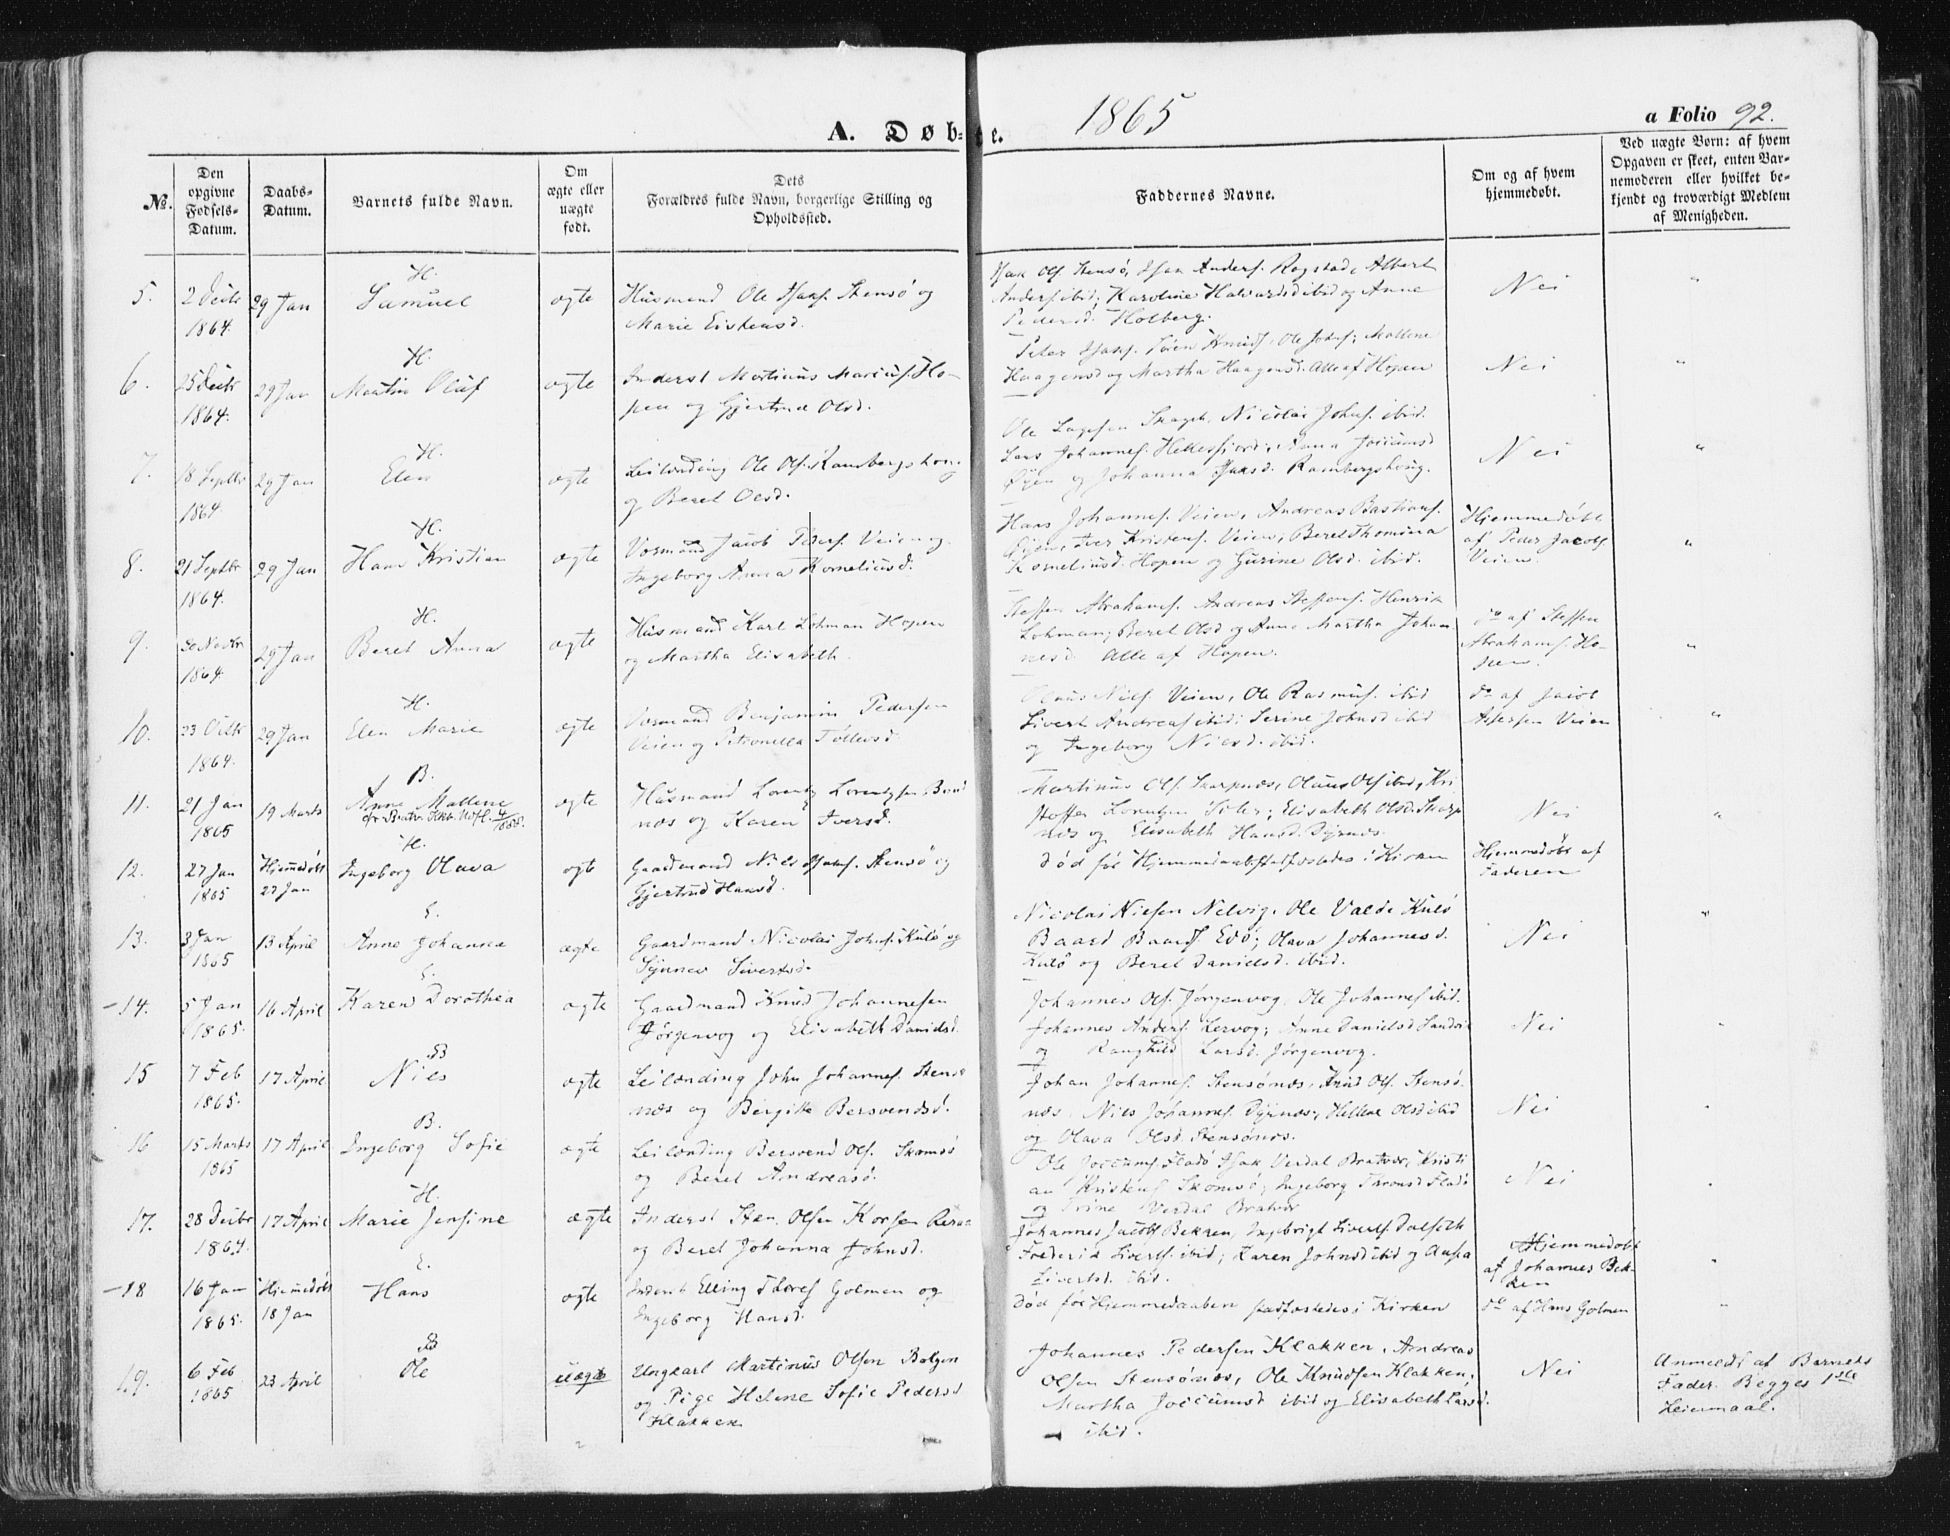 1865
a Folio 92.
A. Døb-te.
No.
Den opgivne Fødsels-Datum.
Daabs-Datum.
Barnets fulde Navn.
Om ægte eller uægte født.
Dets Forældres fulde Navn, borgerlige Stilling og Opholdssted.
Faddernes Navne.
Om og af hvem hjemmedøbt.
Ved uægte Børn: af hvem Opgaven er skeet, enten Barnemoderen eller hvilket bekjendt og troværdigt Medlem af Menigheden.
H.
5. 2 Decbr 1864. 29 Jan Samuel ægte Husmand Ole Isaks. Stensö og
Marie Eistensd.
Isak Ols. Stensö, Isak Anders. Rogstad, Albert
Anders. ibid; Karoline Halvardsd ibid og Anne
Pedersd. Holberg.
Nei "
H.
6. 25 Decbr 1864. 29 Jan Martin Oluf ægte Inderst Martinus Marius. Ho-
pen og Gjertrud Olsd.
Peter Isaks. Sören Knuds. Ole Johs; Mallene
Haagensd og Martha Haagensd. Alle af Hopen
Nei "
H.
7. 18 Septbr 1864 29 Jan Elen ægte Leilænding Ole Ols. Ramberghoug
og Beret Olsd.
Ole Nicolai Johns. ibid.
Lars Johannes. Hellesfjord, Jocumsd
Öyen og Johanna Isaksd. Ramberghoug.
Nei "
H.
8. 21 Septbr 1864. 29 Jan Hans Kristian ægte Jacob Peders. Veien og
Ingeborg Anna Korneliusd.
Hans Johannes. Veien, Andreas Bastians.
Öyen, Iver Kristens. Veien; Beret Thomina
Korneliusd. Hopen og Gurine Olsd. ibid.
Hjemmedöbt
af Peder Jacobs.
Veien. "
H.
9. 30 Novbr 1864 29 Jan Beret Anna ægte Husmand Karl Lohman Hopen
og Martha Elisabeth.
Steffen Abrahams. Andreas Steffens. Henrik
Lohman; Beret Olsd og Anne Martha Johan-
nesd. Alle af Hopen.
do af Steffen
Abrahams. Ho-
pen. "
H.
10. 23 Octbr 1864. 29 Jan Elen Marie ægte Benjamin Pedersen
Veien og Petronella Tollevsd.
Olaus Niels. Veien, Ole Rasmus. ibid
Sivert Andreas. ibid; Serine Johnsd ibid
og Ingeborg Nielsd. ibid.
do af Jacob
Veien "
B.
11. 21 Jan 1865 19 Marts Anne Mallene
ægte Husmand Lorentz Lorentzsen Bred
næs og Karen Iversd.
Martinus Ols. Skarpnæs, Olaus Ols ibid, Kri
stoffer Lorentzen Soler; Elisabeth Olsd. Skarp
næs og Elisabeth Hansd. Dyrnæs.
Nei "
H.
12. 27 Jan 1865 Hjemmedöbt 27 Jan Ingeborg Olava ægte Gaardmand Niels Isaks. Stensö og
Gjertrud Hansd.
Död för Hjemmedaabens Stadfæstedes i Kirken
Hjemmedöbt af
Faderen
E.
13. 3 Jan 1865 13 April Anne Johanna ægte Gaardmand Nicolai Johns. Kulö og
Synnev Sivertsd.
Nicolai Nielsen Nelvig, Ole Valde Kulö
Baard Baards Edö; Olava Johannesd.
Kulö og Beret Danielsd. ibid.
Nei "
E.
-14. 5 Jan 1865. 16 April Karen Dorothea ægte Gaardmand Knud Johannesen
Jörgenvog og Elisabeth Danielsd.
Johannes Ols. Jörgenvog. Ole Johannes ibid.
Johannes Anders. Lervog; Anne Danielsd Sandvik
og Ranghild Larsd. Jörgenvog.
Nei "
B
15 7 Feb 1865. 17 April Nils ægte Leilænding John Johannes. Stensö
næs og Bergitte Bersvendsd.
Johan Johannes. Stensönæs, Knud Ols. Stensö-
næs, Niels Johannes. Dyrnæs; Hellene Olsd ibid
og Olava Olsd. Stensönæs.
Nei "
B.
16 15 Marts 1865 17 April Ingeborg Sofie ægte Leilænding Bersvend Ols. Skomsö
og Beret Andreasd.
Ole Jocums. Fladö Isak Verdal Bratvær, Kristi
an Kristens Skomsö; Ingeborg Tronsd Fladö
og Trine Verdal Bratvær
Nei "
H.
17. 28 Decbr 1864. 17 April Marie Jensine ægte Inderst Sten. Olsen Korsen
og Beret Johanna Johnsd.
Johannes Jacobs Bekken, Ingebrigt Siverts. Dalseth
Frederik Siverts. ibid; Karen Johnsd ibid og
Sivertsd. ibid.
Hjemmedöbt
af Johannes Bek-
ken "
E.
-18 16 Jan 1865. Hjemmedöbt 18 Jan Hans ægte Inderst Elling Thores Golmen og
Ingeborg Hansd.
Död för Hjemmedaaben stadfæstedes i Kirken
do af Hans Golmen "
B
19. 6 Feb 1865 23 April Ole uægte Ungkarl Martinus Olsen Bolgen
og Pige Helene Sofie Pedersd
Klakken
Johannes Pedersen Klakken, Andreas
Olsen Stensönæs, Ole Knudsen Klakken;
Martha Joccumsd ibid og Elisabeth Larsd.
ibid.
Nei
Anmeldt af Barnets
Fader. Begges 1ste
Leiermaal.